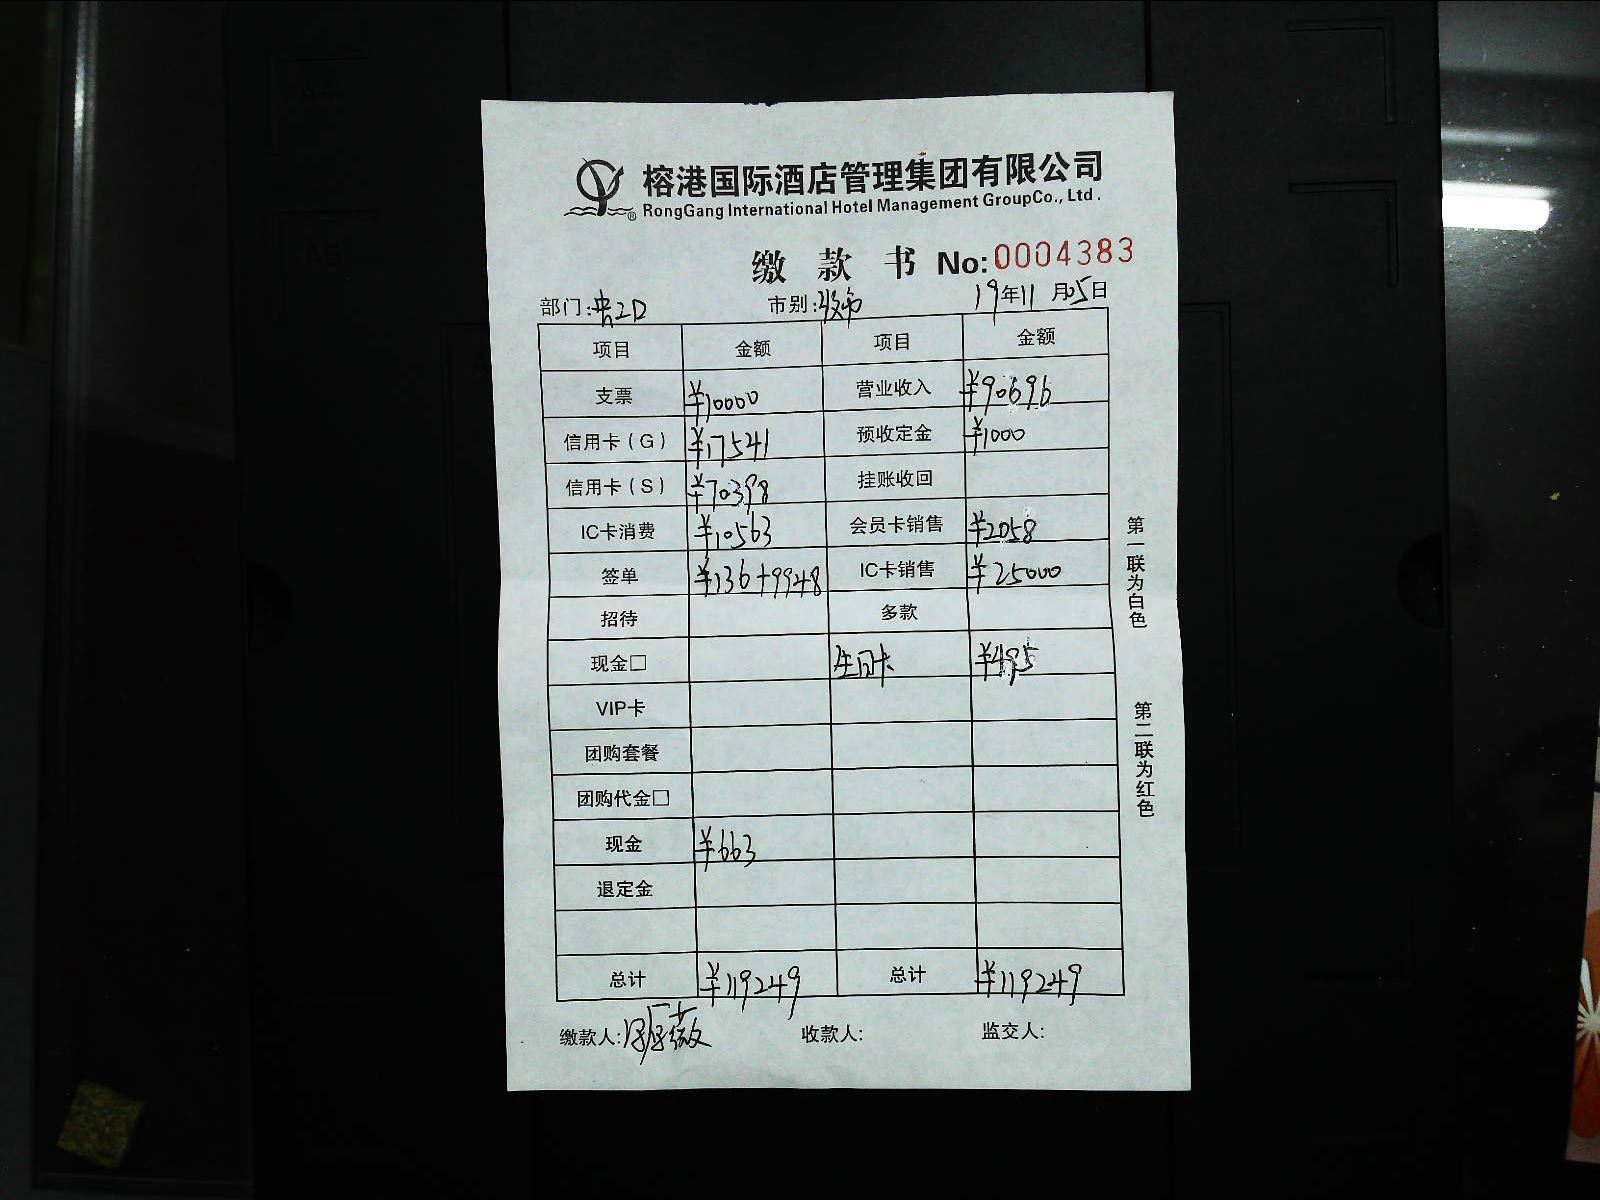 榕港国际酒店管理集团有限公司
RongGang International Hotel Management GroupCo., Ltd.
缴 款 书 No:0004383
部门: 市别: 19年11月05日
项目 金额 项目 金额
支票 ¥10000 营业收入 ¥90696
信用卡（G） ¥17541 预收定金 ¥1000
信用卡（S） ¥70398 挂账收回
IC卡消费 ¥10563 会员卡销售 ¥2058
签单 ¥136+9948 IC卡销售 ¥25000
招待 多款
现金□ 生日卡 ¥495
VIP卡
团购套餐
团购代金□
现金 ¥663
退定金
总计 ¥119249 总计 ¥119249
缴款人: 收款人: 监交人:
第一联为白色
第二联为红色